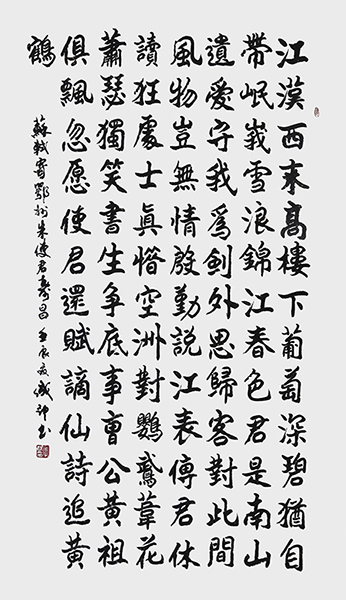 江漢西来高樓下葡萄深碧猶自
帶岷峩雪浪錦江春色君是南山
遺愛守我爲劍外思歸客對此間
風物豈無情殷勤說江表傳君休
讀狂處士眞惜空洲對鸚鵡葦花
蕭瑟獨笑書生爭底事曹公黄祖
俱飄忽愿使君還賦謫仙詩追黄
鶴
蘇軾寄鄂州朱使君壽昌 壬辰夏